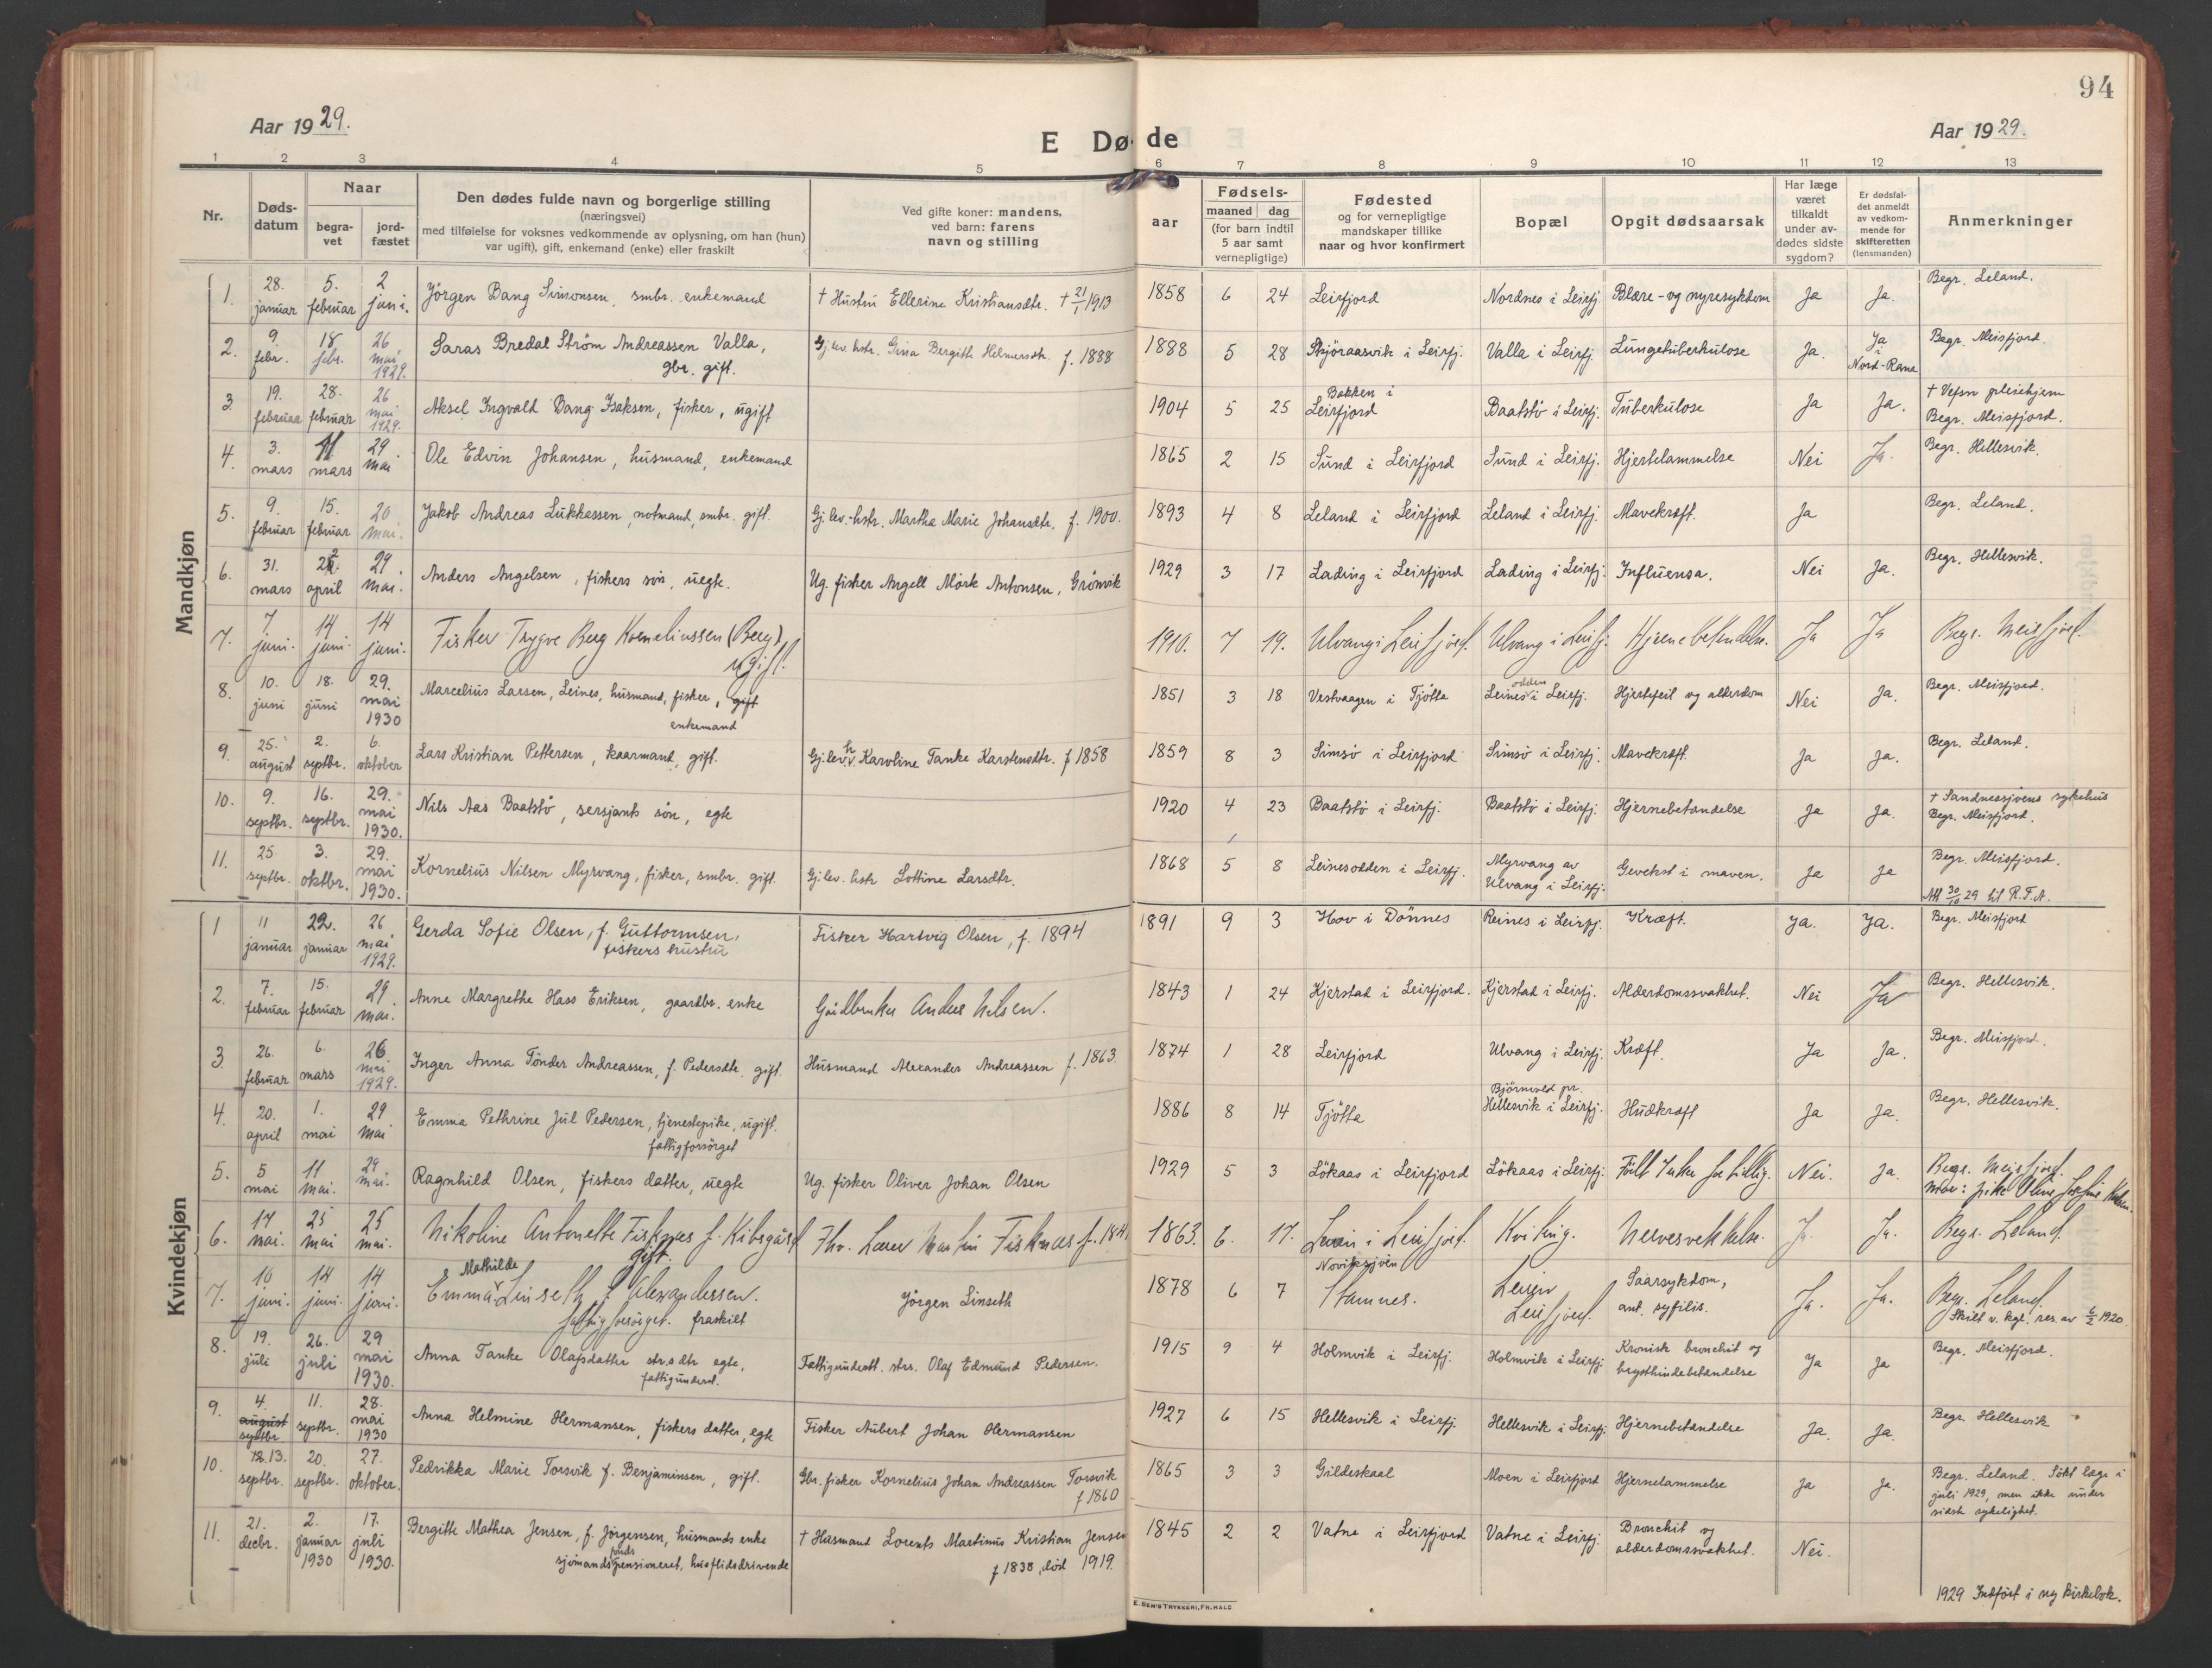 94
Aar 1929.
E Dø- de
Aar 1929.
1 2 3 4 5 6 7 8 9 10 11 12 13
Nr.
Døds-
datum
Naar
begra-
vet
jord-
fæstet
Den dødes fulde navn og borgerlige stilling
(næringsvei)
med tilføielse for voksnes vedkommende av oplysning, om han (hun)
var ugift), gift, enkemand (enke) eller fraskilt
Ved gifte koner: mandens,
ved barn: farens
navn og stilling
Fødsels-
aar
maaned dag
(for barn indtil
5 aar samt
vernepligtige)
Fødested
og for vernepligtige
mandskaper tillike
naar og hvor konfirmert
Bopæl
Opgit dødsaarsak
Har læge
været
tilkaldt
under av-
dødes sidste
sygdom?
Er dødsfal-
det anmeldt
av vedkom-
mende for
skifteretten
(lensmanden)
Anmerkninger
Mandkjøn
1. 28. januar 5. februar 2 juni. Jörgen Bang Simonsen, smbr. enkemand † Hustru Ellerine Kristiansdtr. † 21/1 1913 1858 6 24 Leirfjord Nordnes i Leirfj. Blære- og nyresykdom Ja Ja. Begr. Leland.
2. 9. febr. 18. febr. 26 mai 1929. Saras Bredal Ström Andreassen Valla, gbr. gift. Gj. lev. hstr. Gina Bergith Helmersdtr. f. 1888 1888 5 28 Skjöraasvik i Leirfj. Valla i Leirfj. Lungetuberkulose Ja. Ja i Nord-Rana Begr. Meisfjord.
3. 19. februar 28. februar 26 mai 1929. Aksel Ingvald Bang Isaksen, fisker, ugift 1904 5 25 Bakken i Leirfjord Baatstö i Leirfj. Tuberkulose Ja Ja. † Vefsn pleiehjem Begr. Meisfjord.
4. 3. mars 11 mars 29 mai Ole Edvin Johansen, husmand, enkemand 1865 2 15 Sund i Leirfjord Sund i Leirfj. Hjertelammelse Nei Ja. Begr. Hellesvik.
5. 9. februar 15. februar 20 mai. Jakob Andreas Lukkassen, notmand, smbr. gift. Gj. lev. hstr. Martha Marie Johansdtr. f. 1900. 1893 4 8 Leland i Leirfjord Leland i Leirfj. Mavekræft. Ja Begr. Leland.
6. 31. mars 2 april 29. mai. Anders Angelsen, fiskers sön, uegte. Ug. fisker Angell Mörk Antonsen, Grönvik 1929 3 17 Lading i Leirfjord Lading i Leirfj. Influensa. Nei Ja. Begr. Hellesvik.
7. 7 juni. 14 juni. 14 juni. Fisker Trygve Berg Korneliussen (Berg), ugift. 1910. 7 19. Ulvang i Leirfjord. Ulvang i Leirfj. Hjernebetendelse. Ja Ja Begr. Meisfjord.
8. 10. juni 18. juni 29. mai 1930 Marcelius Larsen, Leines, husmand, fisker, gift enkemand 1851 3 18 Vestvaagen i Tjötta Leinesodden i Leirfj. Hjertefeil og alderdom Nei Ja. Begr. Meisfjord.
9. 25. august 2. septbr. 6. oktober Lars Kristian Pettersen, kaarmand, gift. Gj. lev. h. Karoline Tanke Karstensdtr. f 1858 1859 8 3 Simsö i Leirfjord Simsö i Leirfj. Mavekræft. Ja Ja. Begr. Leland.
10. 9. septbr. 16. septbr. 29. mai 1930. Nils Aas Baatstö, sersjants sön, egte 1920 4 23 Baatstö i Leirfj. Baatstö i Leirfj. Hjernebetændelse Ja Ja. † Sandnessjöens sykehus Begr. Meisfjord.
11. 25. septbr. 3. oktbr. 29. mai 1930. Kornelius Nilsen Myrvang, fisker, smbr. gift. Gj. lev. hstr Lottine Larsdtr. 1868 5 8 Leinesodden i Leirfj. Myrvang av Ulvang i Leirfj. Gevekst i maven. Ja Ja Begr. Meisfjord. Att 30/10 29 til R.T.A.
Kvindekjøn
1 11 januar 22. januar 26 mai 1929. Gerda Sofie Olsen, f. Guttormsen, fiskers hustru Fisker Hartvig Olsen, f. 1894 1891 9 3 Hov i Dönnes Reines i Leirfj. Kræft. Ja. Ja. Begr. Meisfjord
2. 7. februar 15. februar 29. mai. Anne Margrethe Hass Eriksen, gaardbr. enke Gårdbruker Anders Nilsen. 1843 1 24 Kjerstad i Leirfjord. Kjerstad i Leirfj. Alderdomssvakhet. Nei Ja Begr. Hellesvik.
3 26. februar 6. mars 26. mai 1929. Inger Anna Tönder Andreassen, f. Pedersdtr. gift. Husmand Alexander Andreassen f. 1863. 1874 1 28 Leirfjord Ulvang i Leirfj. Kræft. Ja Ja. Begr. Meisfjord.
4 20. april 1. mai 29 mai Emma Pethrine Jul Pedersen, tjenestepike, ugift. fattigforsörget 1886 8 14 Tjötta Hellesvik i Leirfj. Hudkræft Ja Ja. Begr. Hellesvik.
5. 5 mai 11 mai. 29 mai. Ragnhild Olsen, fiskers datter, uegte Ug. fisker Oliver Johan Olsen 1929 5 3 Lökaas i Leirfjord Lökaas i Leirfj. Född for tidlig. Nei. Ja. Begr. Meisfjord. Mor: pike Oline
6. 17 mai. 25 mai 25 mai. Nikoline Antonette Fisknes f. Kibsgård gift. Fhv. Lærer Martin Fisknes f. 184 1863. 6. 17. Leren i Leirfjord. Kviting. Nervesvekkelse. Ja. Ja. Begr. Leland.
7. 10 juni. 14 juni. 14 juni. Emma Mathilde Linseth f. Alexandersen. fattigforsörget. fraskilt Jörgen Linseth 1878 6 7 Noviksjöen Stamnes. Leiren Leirfjord. Saarsykdom, ant. syfilis. Ja. Ja. Begr. Leland Skilt v. kgl. res. av 6/2 1920.
8. 19. juli 26. juli 29 mai 1930. Anna Tanke Olafsdatter strs. dtr egte, fattigunderst. Fattigunderst. strs. Olaf Edmund Pedersen. 1915 9 4 Holmvik i Leirfj. Holmvik i Leirfj. Kronisk bronchit og brysthindebetændelse Ja Ja Begr. Meisfjord.
9. 4. august septbr 11. septbr. 28. mai 1930 Anna Helmine Hermansen, fiskers datter, egte Fisker Aubert Johan Hermansen 1927 6 15 Hellesvik i Leirfj. Hellesvik i Leirfj. Hjernebetændelse Ja. Ja. Begr. Hellesvik
10. 12. 13. septbr. 20. septbr. 27. oktober. Pedrikka Marie Forsvik f. Benjaminsen, gift. Gbr. fisker Kornelius Johan Andreassen Forsvik f 1860 1865 3 3 Gildeskaal Moen i Leirfjord Hjernelammelse Ja Ja. Begr. Leland. Sökt læge i juli 1929, men ikke under sidste sykelighet.
11. 21. decbr. 2. januar 1930 17. juli 1930. Bergitte Mathea Jensen, f. Jörgensen, husmands enke sjömandsfondspensioneret, husflidsdrivende † Husmand Lorents Martinus Kristian Jensen f 1838, död 1919. 1845 2 2 Vatne i Leirfjord Vatne i Leirfj. Bronchit og alderdomssvakhet. Nei.
1929 Indført i ny kirkebok.
E. SEM'S TRYKKERI, FR.HALD